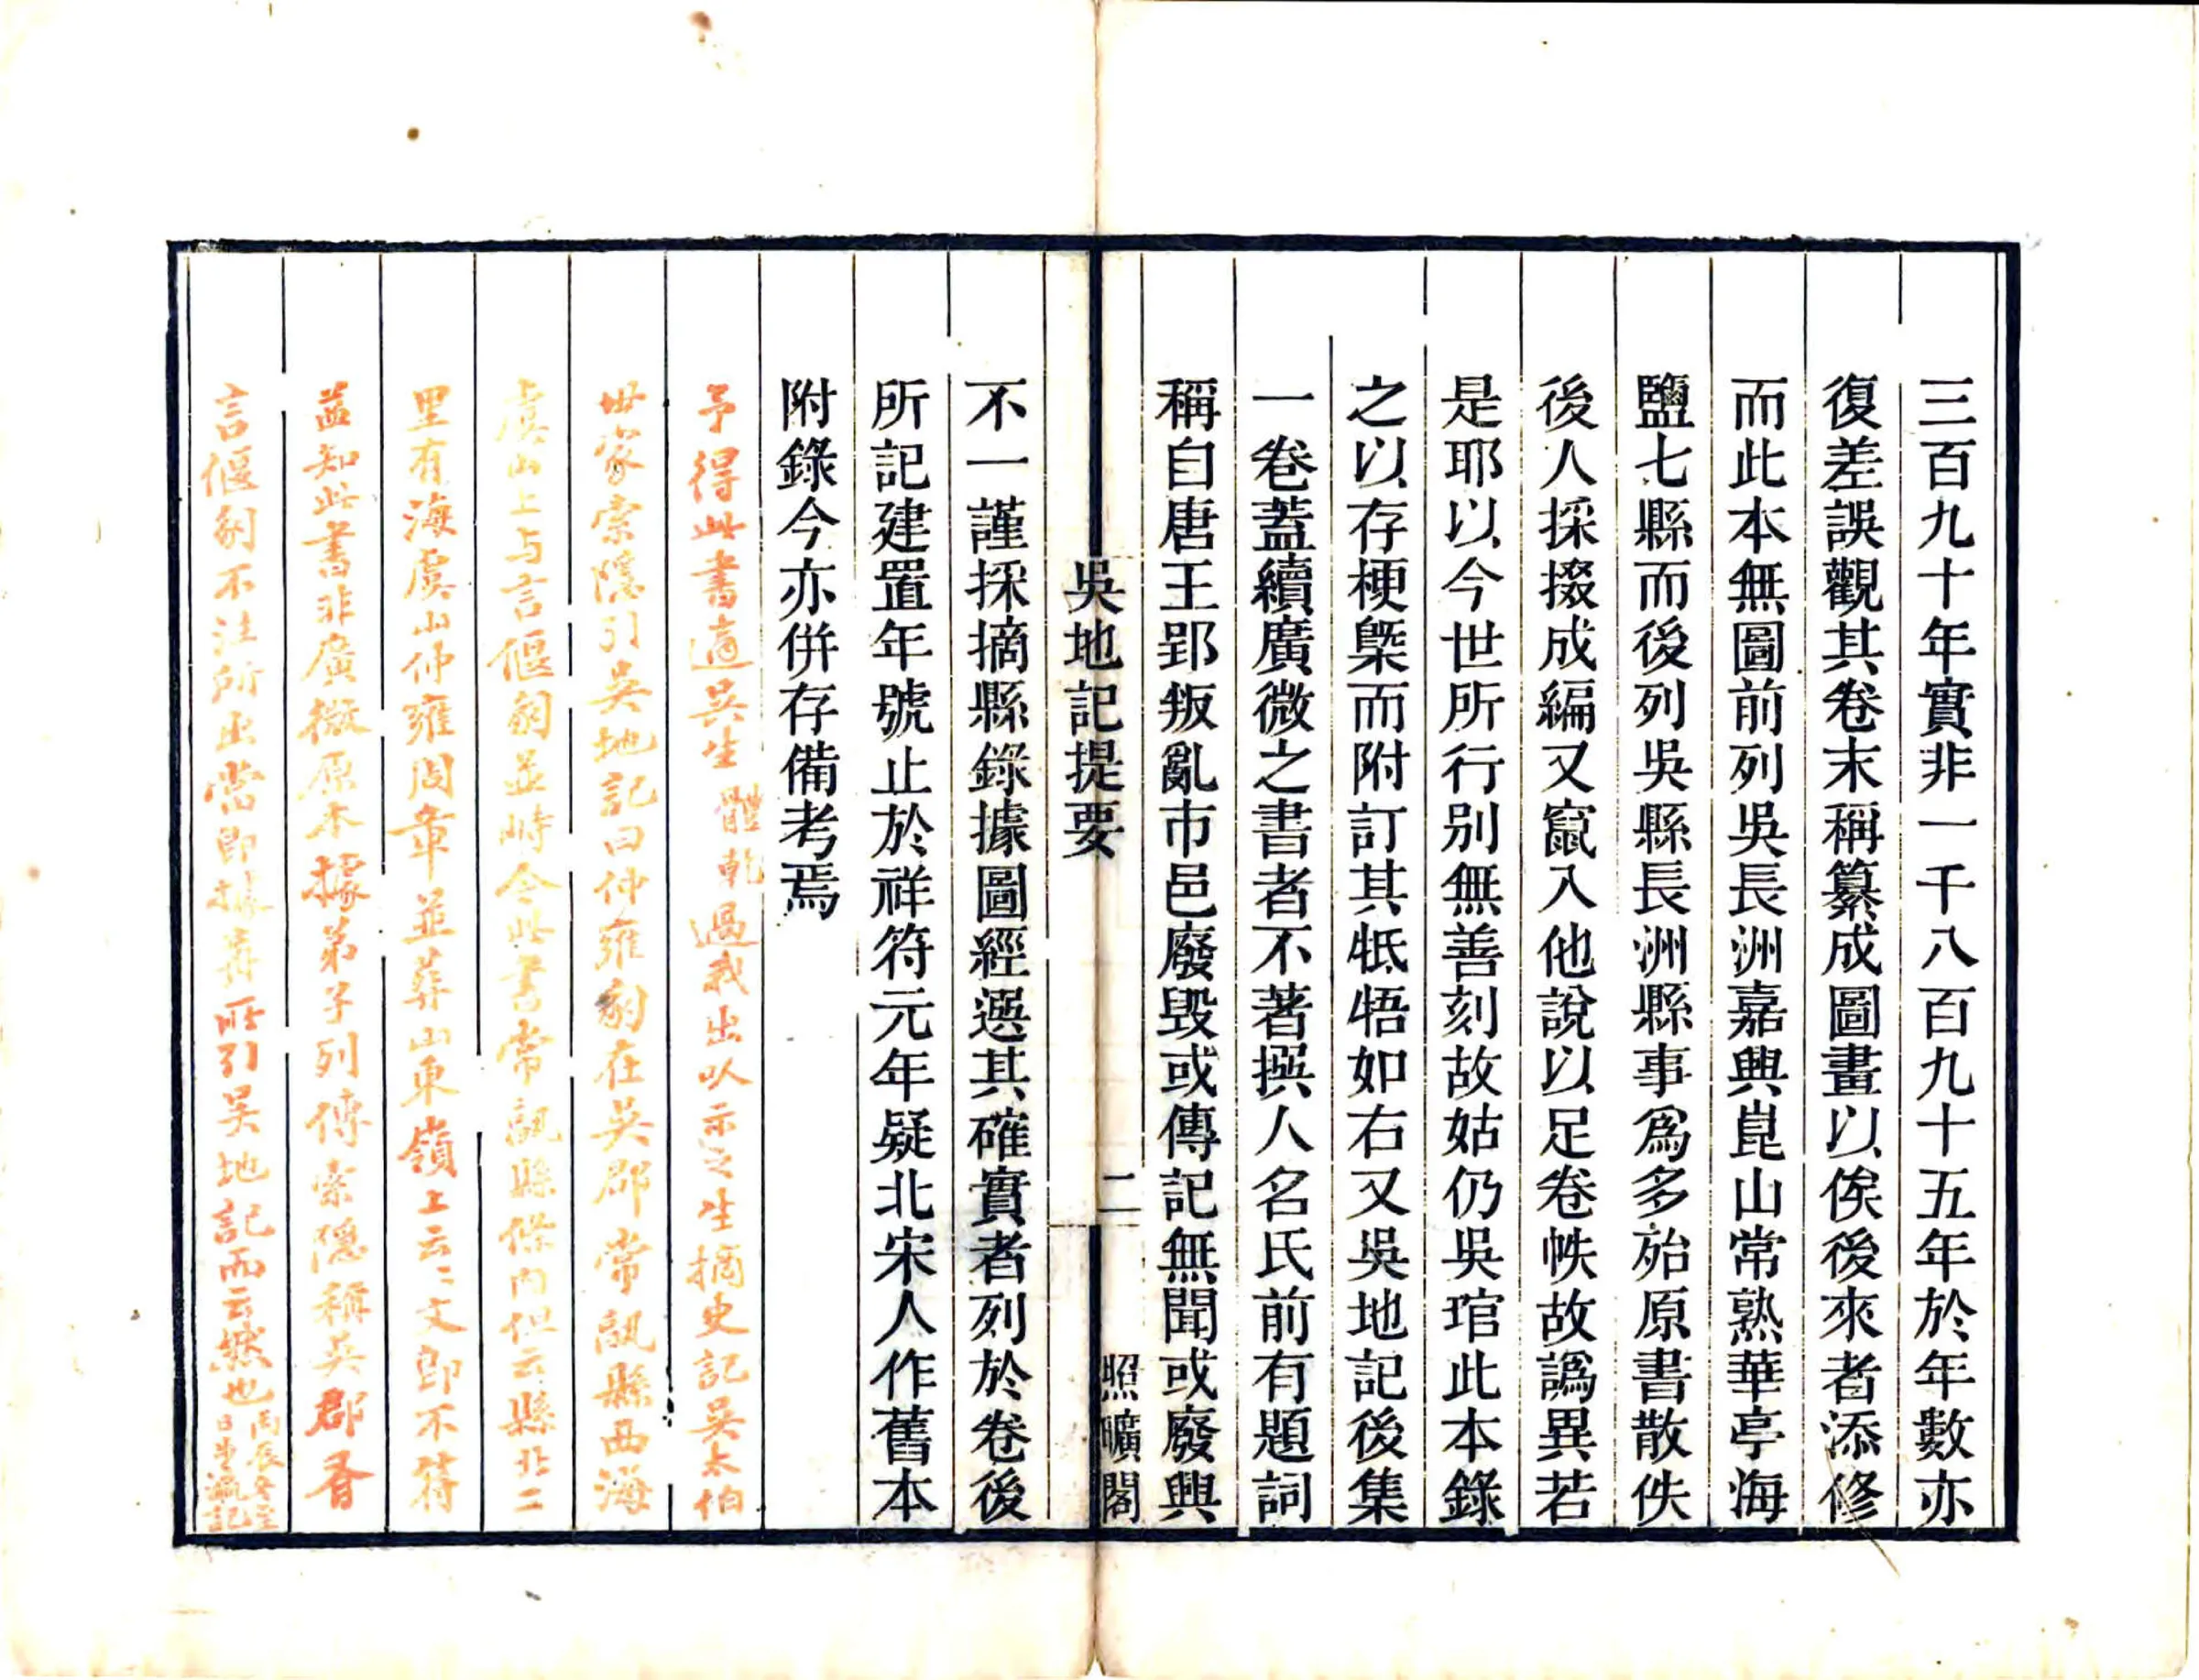 三百九十年實非一千八百九十五年於年數亦
復差誤觀其卷末稱纂成圖畫以俟後來者添修
而此本無圖前列吳長洲嘉興崑山常熟華亭海
鹽七縣而後列吳縣長洲縣事爲多殆原書散佚
後人採掇成編又竄入他說以足卷帙故譌異若
是耶以今世所行别無善刻故姑仍吳琯此本錄
之以存梗槩而附訂其牴牾如右又吳地記後集
一卷蓋續廣微之書者不著撰人名氏前有題詞
稱自唐王郢叛亂市邑廢毀或傳記無聞或廢興
吳地記提要 二 照曠閣
不一謹採摘縣錄據圖經選其確實者列於卷後
所記建置年號止於祥符元年疑北宋人作舊本
附錄今亦併存備考焉
予得此書適吳生體乾過我出以示之生摘史記吳太伯
世家索隱引吳地記曰仲雍冢在吳郡常熟縣西海
虞山上與言偃冢並時今此書常熟縣條內但云縣北二
里有海虞山仲雍周章並葬山東嶺上云云文即不符
益知此書非廣微原本據弟子列傳索隱稱吳郡有
言偃冢不注所出當即據前所引吳地記而云然也丙辰冬至
日